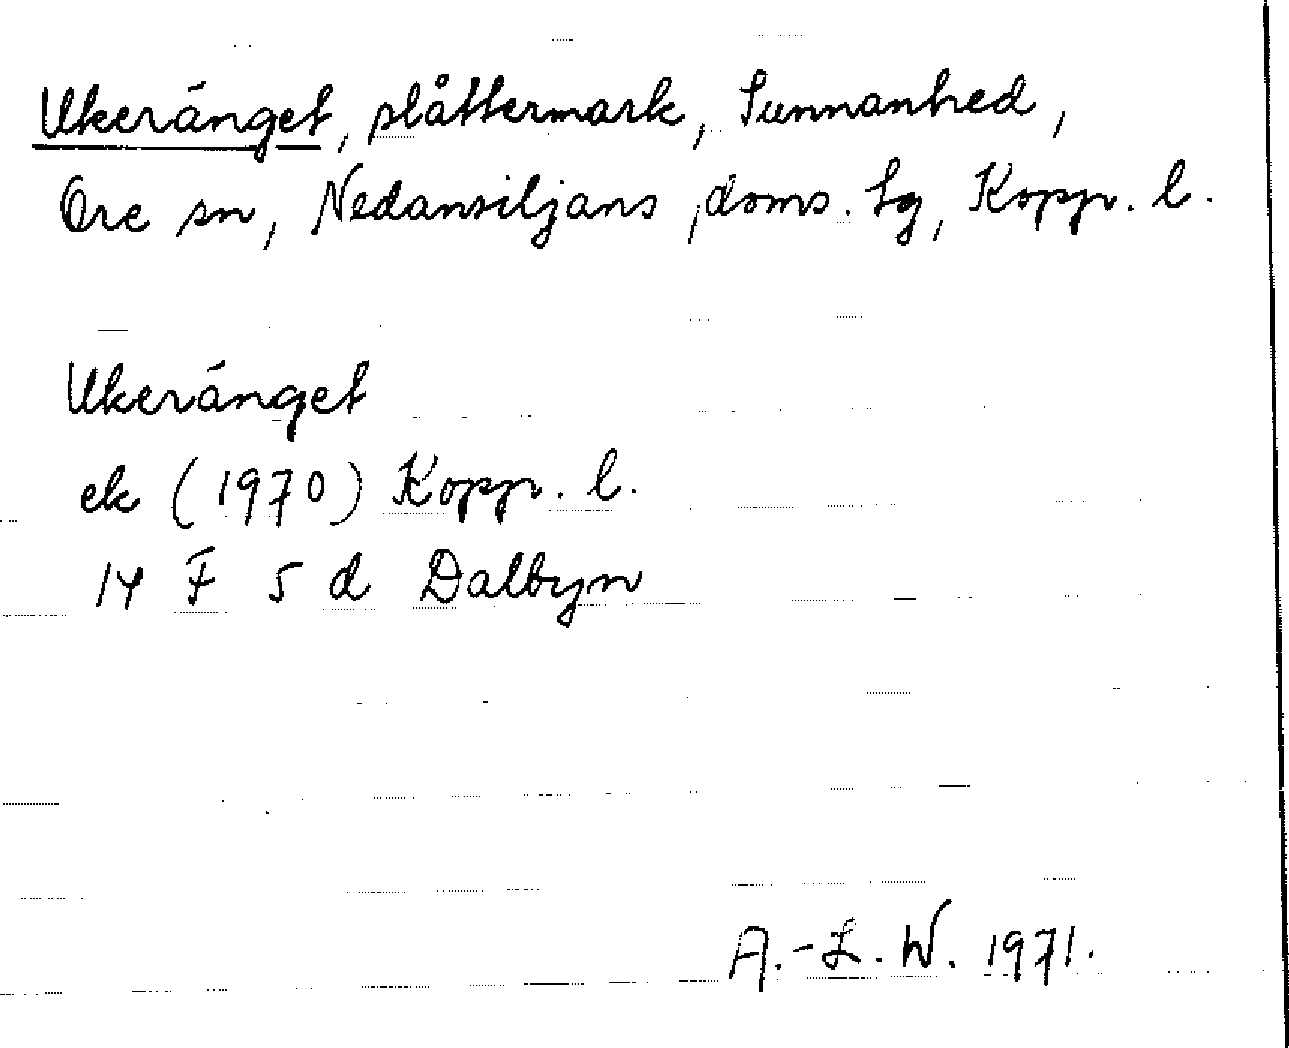 Ukeränget, slåttermark, Sunnanhed,
Ore sn, Nedansiljans doms. lg, Kopp. l.
Ukeränget
ek (1970) Kopp. l.
14 F 5 d Dalbyn
A.-L. W. 1971.